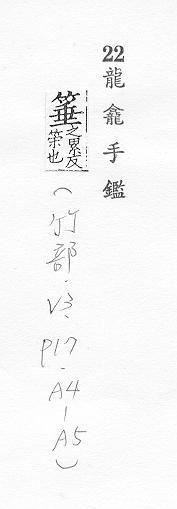 22龍龕手鑑
箠之累反
策也
（竹部．V3、P17-A4-A5）